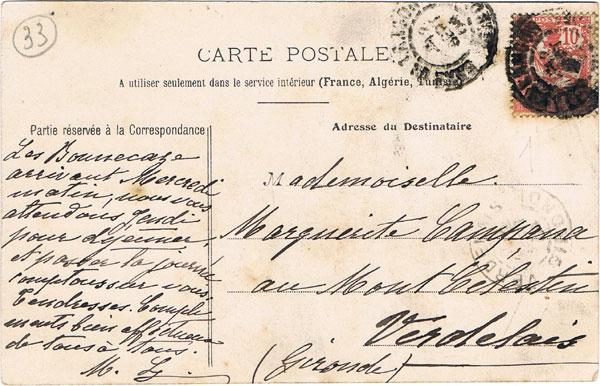 33
CARTE POSTALE
10
A utiliser seulement dans le service intérieur (France, Algérie, Tunisie)
Partie réservée à la Correspondance
Les Bonnecaze
arrivant Mercredi
matin, nous vous
attendons jeudi
pour déjeuner,
et passer la journée
comptous sur vous.
Tendresses. Compli
ments bien affectueux
de tous à tous.
M. L.
Adresse du Destinataire
1
Mademoiselle
Marguerite Campana
au Mont Célentin
Verdelais
(Gironde)